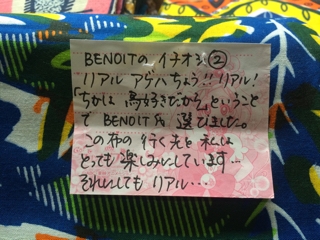 BENOITの イチオシ②
リアル アゲハちょう!! リアル!
「ちかは 鳥好きだから」ということ
で BENOITが 選びました。
この布の 行く先を 私は
とっても 楽しみにしています…
それにしても リアル…